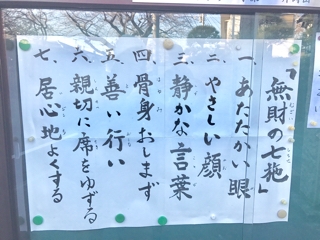 「無財の七施」
一、あたたかい眼
二、やさしい顔
三、静かな言葉
四、骨身おしまず
五、善い行い
六、親切に席をゆずる
七、居心地よくする